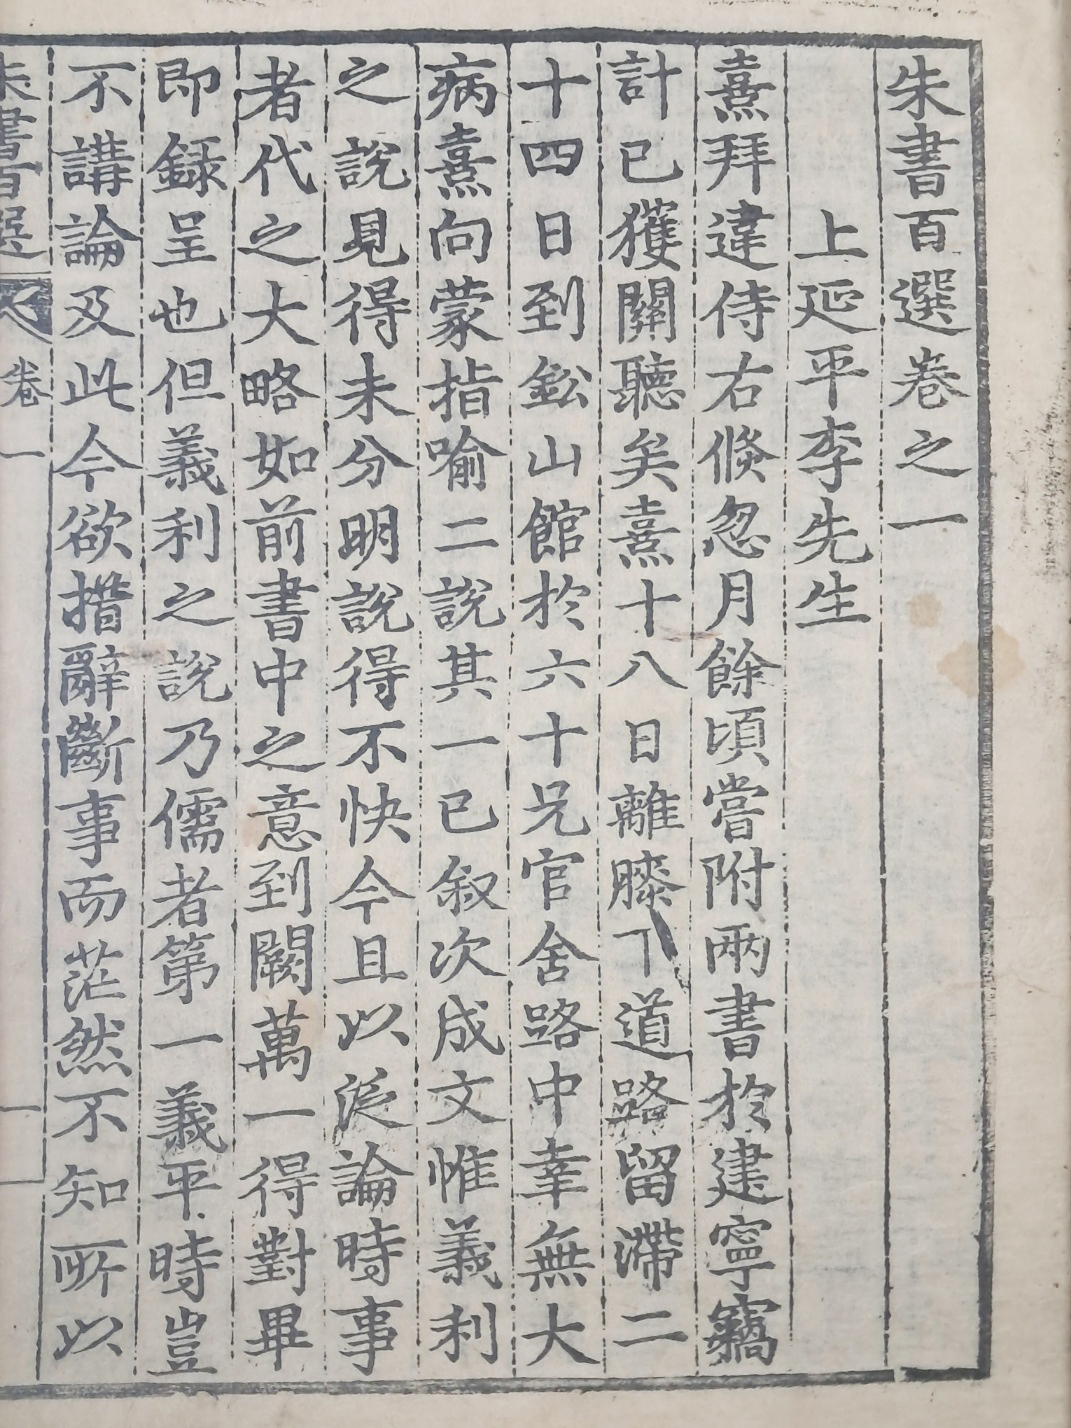 朱書百選卷之一
上延平李先生
熹拜違侍右倐忽月餘頃嘗附兩書於建寧竊
計已獲關聽矣熹十八日離膝下道路留滯二
十四日到鈆山館於六十兄官舍路中幸無大
病熹向蒙指喻二說其一已叙次成文惟義利
之說見得未分明說得不快今且以泛論時事
者代之大略如前書中之意到闕萬一得對畢
即錄呈也但義利之說乃儒者第一義平時豈
不講論及此今欲措辭斷事而茫然不知所以
朱書百選 卷一 一